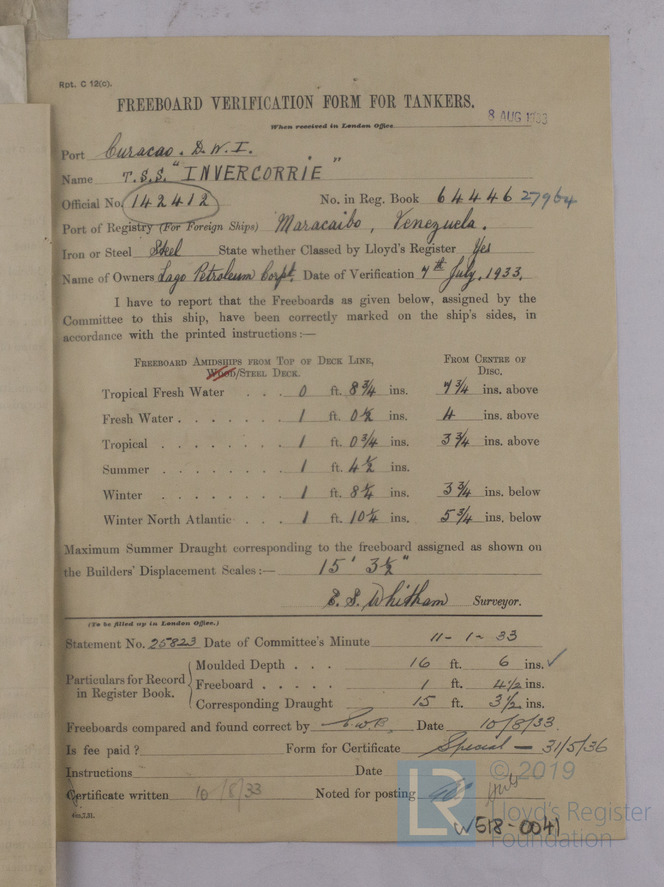 Rpt. C 12(c).
FREEBOARD VERIFICATION FORM FOR TANKERS.
When received in London Office 8 AUG 1933
Port Curacao. D.W.I.
Name T.S.S. "INVERCORRIE"
Official No. 142412 No. in Reg. Book 64446 27964
Port of Registry (For Foreign Ships) Maracaibo, Venezuela.
Iron or Steel Steel State whether Classed by Lloyd's Register Yes
Name of Owners Lago Petroleum Corpt. Date of Verification 7th July, 1933.
I have to report that the Freeboards as given below, assigned by the
Committee to this ship, have been correctly marked on the ship's sides, in
accordance with the printed instructions:—
FREEBOARD AMIDSHIPS FROM TOP OF DECK LINE, FROM CENTRE OF
WOOD/STEEL DECK. DISC.
Tropical Fresh Water 0 ft. 8 3/4 ins. 7 3/4 ins. above
Fresh Water . . . . . . . 1 ft. 0 1/2 ins. 4 ins. above
Tropical . . . . . . . . 1 ft. 0 3/4 ins. 3 3/4 ins. above
Summer . . . . . . . . 1 ft. 4 1/2 ins.
Winter . . . . . . . . 1 ft. 8 1/4 ins. 3 3/4 ins. below
Winter North Atlantic . . . 1 ft. 10 1/4 ins. 5 3/4 ins. below
Maximum Summer Draught corresponding to the freeboard assigned as shown on
the Builders' Displacement Scales:— 15' 3 1/2"
E. S. Whitham Surveyor.
(To be filled up in London Office.)
Statement No. 25823 Date of Committee's Minute 11-1-33
Particulars for Record in Register Book.
Moulded Depth . . . 16 ft. 6 ins. ✓
Freeboard . . . . . 1 ft. 4 1/2 ins.
Corresponding Draught 15 ft. 3 1/2 ins.
Freeboards compared and found correct by Date 10/8/33.
Is fee paid? Form for Certificate Special — 31/5/36
Instructions Date
Certificate written 10/8/33 Noted for posting
4m,7,31.
© 2019
LR Lloyd's Register
Foundation
W518-0041